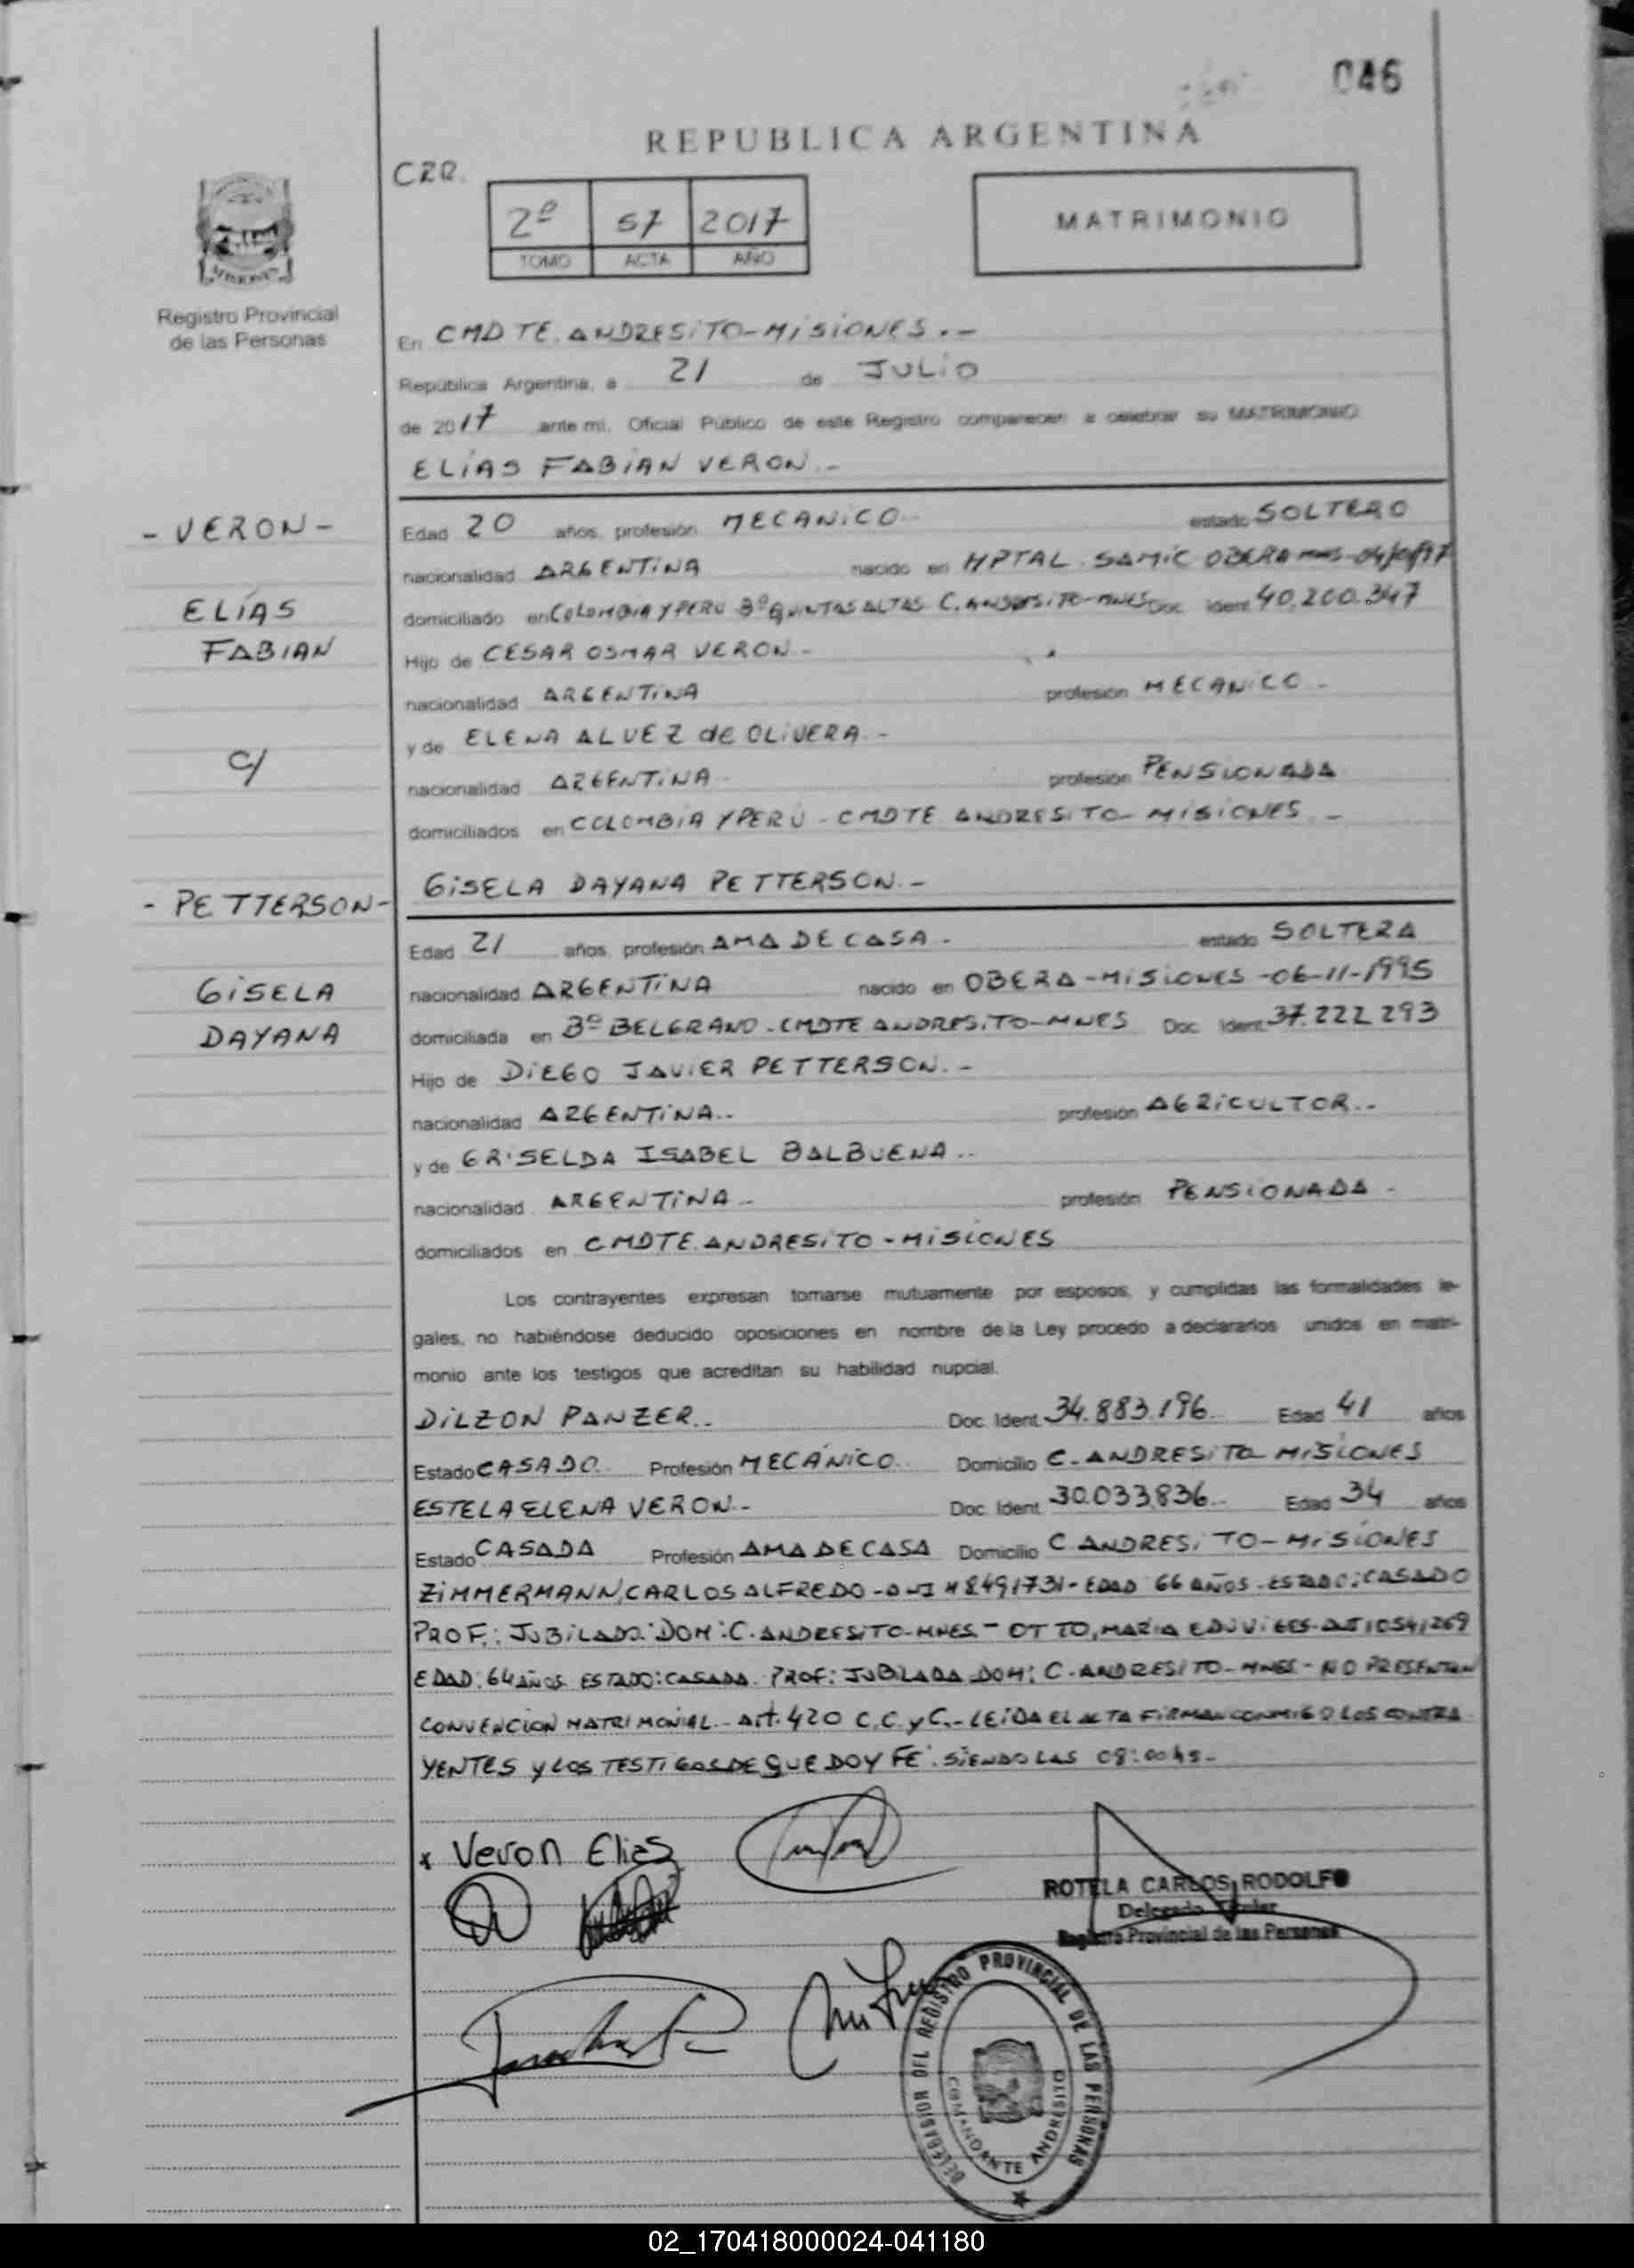 046
REPUBLICA ARGENTINA
CZR.
2º 57 2017
TOMO ACTA AÑO
MATRIMONIO
Registro Provincial
de las Personas
En CMDTE. ANDRESiTO-MiSiONES.-
República Argentina, a 21 de JULiO
de 2017 ante mi, Oficial Público de este Registro comparecen a celebrar su MATRIMONIO
ELiAS FABiAN VERON.-
- VERON -
ELÍAS
FABIAN
C/
- PETTERSON -
GiSELA
DAYANA
Edad 20 años, profesión MECANiCO.- estado SOLTERO
nacionalidad ARGENTiNA nacido en HPTAL. SAMiC OBERA MNS-
domiciliado en COLOMBiA Y PERU Bº QUiNTAS ALTAS C. ANDRESiTO-MNES Doc. Ident. 40.200.347
Hijo de CESAR OSMAR VERON.-
nacionalidad ARGENTiNA profesión MECANiCO -
y de ELENA ALVEZ de OLiVERA.-
nacionalidad ARGENTiNA.- profesión PENSiONADA
domiciliados en COLOMBiA Y PERÚ - CMDTE ANDRESiTO - MiSiONES. -
GiSELA DAYANA PETTERSON.-
Edad 21 años, profesión AMA DE CASA.- estado SOLTERA
nacionalidad ARGENTiNA nacido en OBERA-MiSiONES -06-11-1995
domiciliada en Bº BELGRANO.-CMDTE ANDRESiTO-MNES Doc. Ident. 37.222.293
Hijo de DiEGO JAViER PETTERSON.-
nacionalidad ARGENTiNA.- profesión AGRiCULTOR.-
y de GRiSELDA ISABEL BALBUENA.-
nacionalidad ARGENTiNA.- profesión PENSiONADA.-
domiciliados en CMDTE. ANDRESiTO-MiSiONES
Los contrayentes expresan tomarse mutuamente por esposos, y cumplidas las formalidades le-
gales, no habiéndose deducido oposiciones en nombre de la Ley procedo a declararlos unidos en matri-
monio ante los testigos que acreditan su habilidad nupcial.
DiLZON PANZER.- Doc. Ident. 34.883.196 Edad 41 años
Estado CASADO. Profesión MECÁNiCO. Domicilio C. ANDRESiTO MiSiONES
ESTELA ELENA VERON.- Doc. Ident. 30.033.836 Edad 34 años
Estado CASADA Profesión AMA DE CASA Domicilio C. ANDRESiTO-MiSiONES
ZiMMERMANN, CARLOS ALFREDO - DNI Nº 8.491.731 - EDAD 66 AÑOS. ESTADO: CASADO
PROF.: JUBiLADO. DOM: C. ANDRESiTO-MNES.- OTTO, MARiA EDUViGES. DNI 10541269
EDAD: 64 AÑOS ESTADO: CASADA. PROF: JUBiLADA DOM: C. ANDRESiTO-MNES - NO PRESENTAN
CONVENCiON MATRiMONiAL.- Art. 420 C.C.yC.- LEiDA EL ACTA FiRMAN CONMiGO LOS CONTRA
YENTES Y LOS TESTiGOS DE QUE DOY FE. SiENDO LAS 08:00 hs.-
x Veron Elias
ROTELA CARLOS RODOLFO
Delegado Titular
Registro Provincial de las Personas
DELEGACION DEL REGISTRO PROVINCIAL DE LAS PERSONAS
COMANDANTE ANDRESITO
02_170418000024-041180